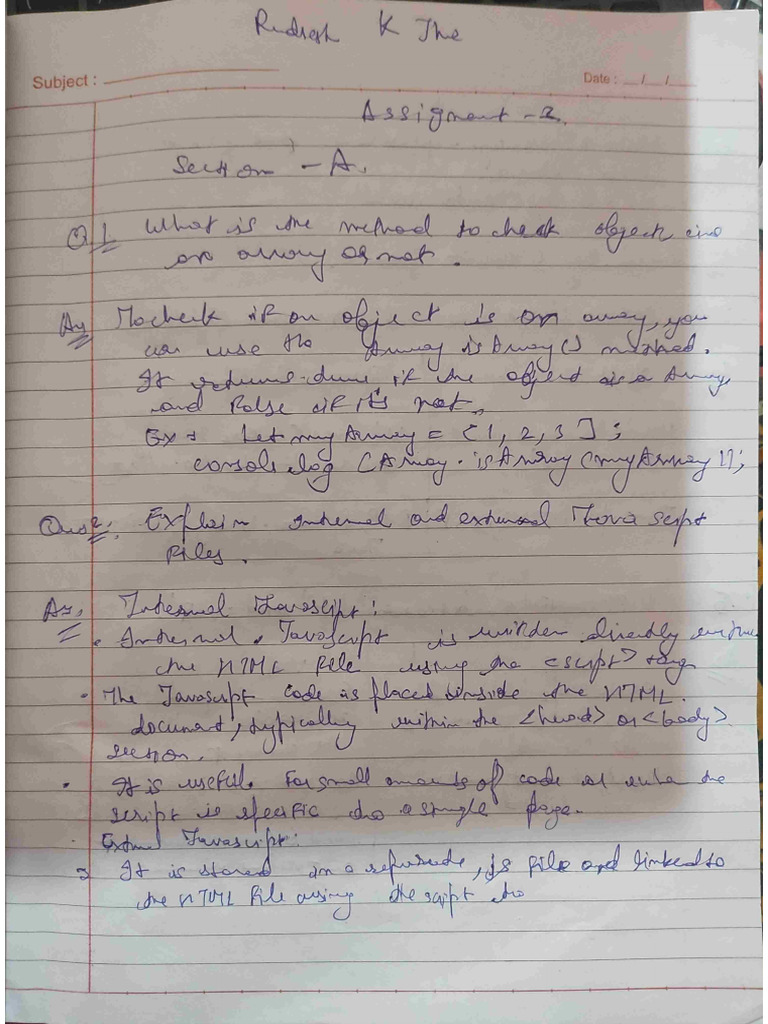 Rudresh K Jha
Subject :
Date : / /
Assigment -2.
Section - A.
Q1 What is the method to check object is
an array or not.
Ans To check if an object is an array, you
can use the Array isArray () method.
It returns true if the object is a Array
and false if it's not.
Ex Let myArray = [1, 2, 3 ];
console.log (Array. isArray (myArray));
Ques 2: Explain internal and external Java script
files.
Ans. Internal Javascipt:
• Internal JavaScript is written directly within
the HTML file using the <script> tag
• The Javascript code is placed inside the HTML.
document, typically within the <head> or <body>
section.
• It is useful. For small amounts of code or when the
script is specific to a single page.
• External Javascript:
It is stored in a seperate, js file and linked to
the HTML file using the script